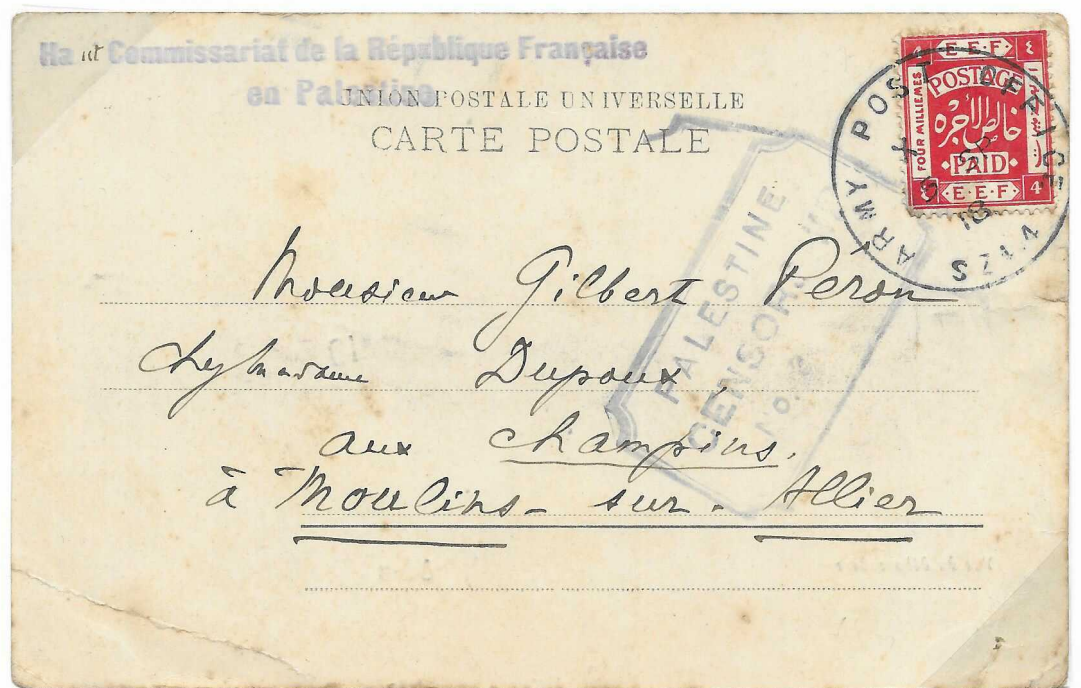 Haut Commissariat de la République Française
en Palestine
UNION POSTALE UNIVERSELLE
CARTE POSTALE
E·E·F
POSTAGE
FOUR MILLIEMES
خالص الأجرة
PAID
E·E·F 4
ARMY POST OFFICE SZ14
18
PALESTINE
CENSORSHIP
No.
Monsieur Gilbert Péron
chez madame Dupoux,
aux Champins.
à Moulins-sur-Allier